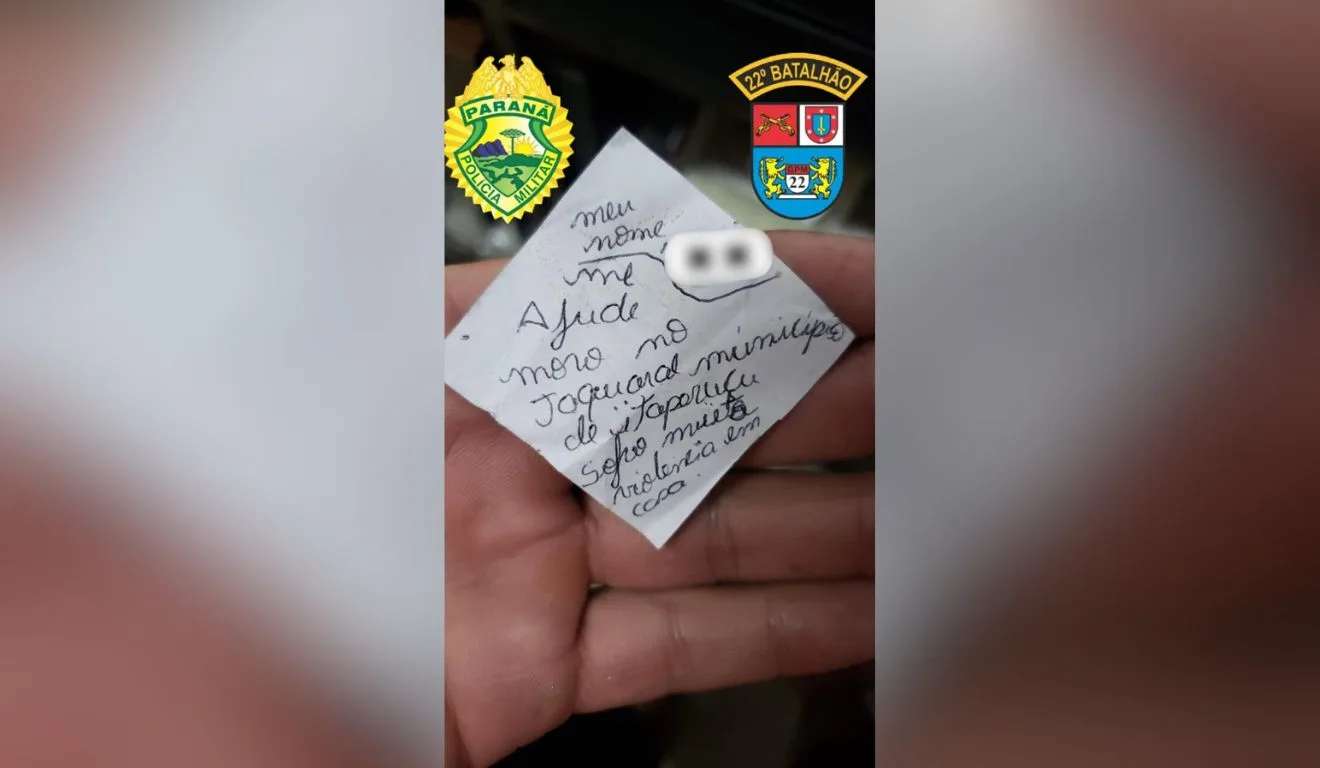 PARANÁ
POLÍCIA MILITAR
22º BATALHÃO
BPM
22
meu
nome
me
Ajude
moro no
Toquaral município
de itaperuçu
sofro muita
violencia em
casa.